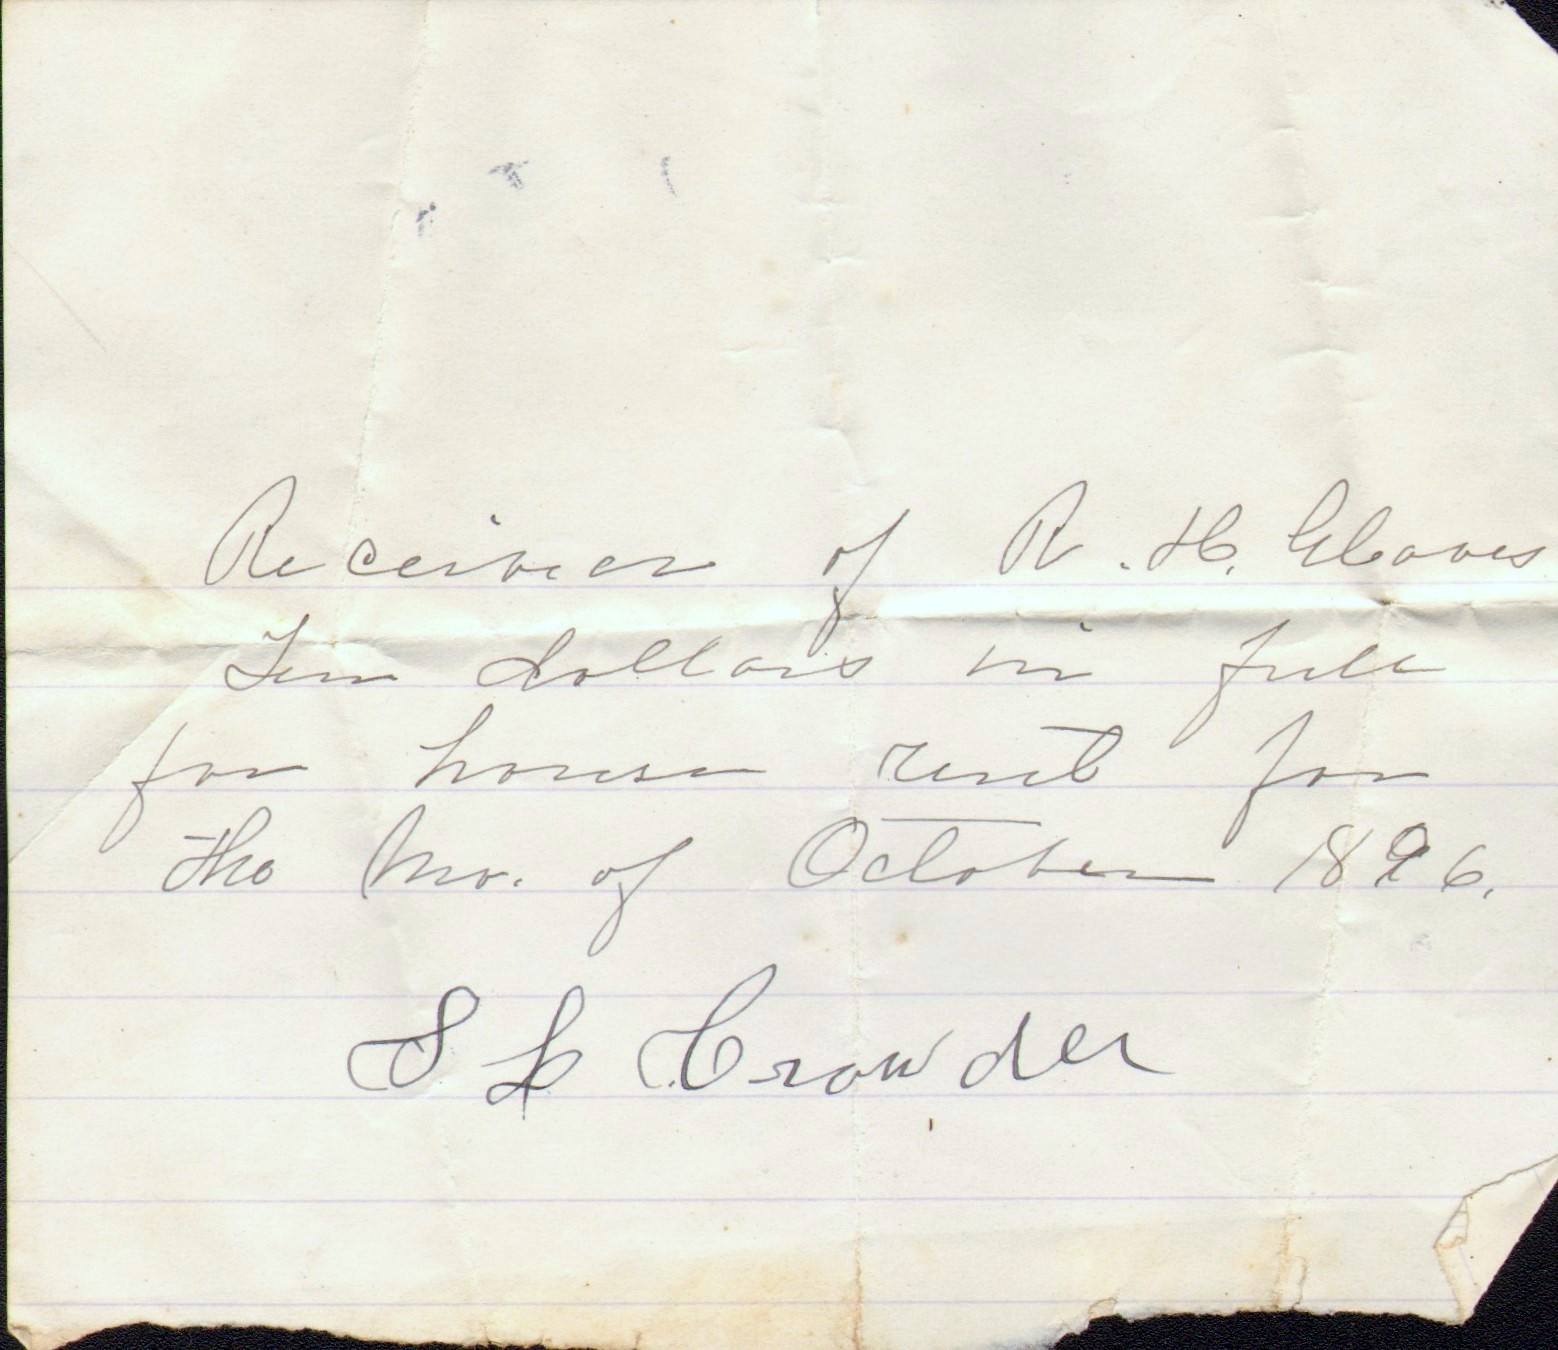 Received of R. H. Gloves
Ten dollars in full
for house rent for
the Mo. of October 1896.
S L Crowder